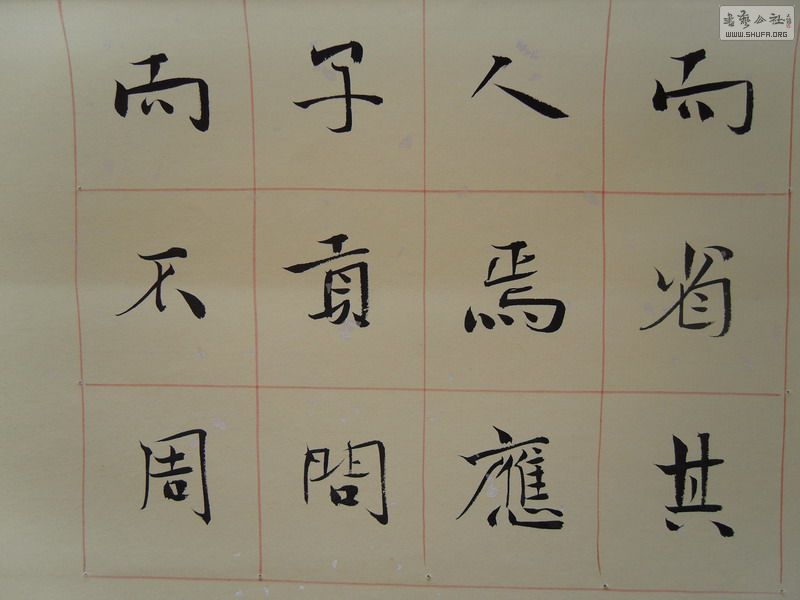 而省其
人焉應
子貢問
而不周
書藝公社
WWW.SHUFA.ORG